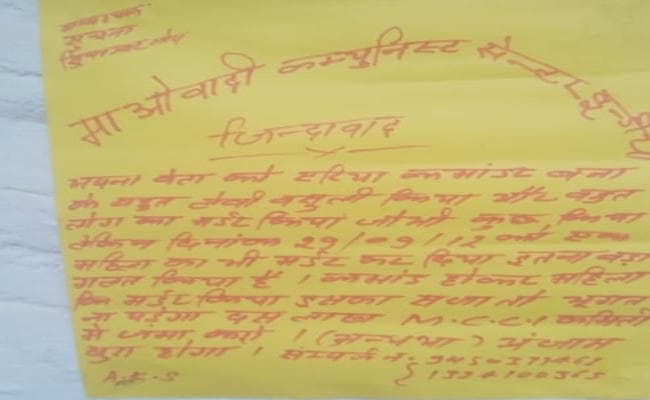 सूचना
माओवादी कम्युनिस्ट सेन्टर इन्डिया
जिन्दावाद
अपना बेटा को एरिया कमांडर बना
के बहुत लेवी वसुली किया और बहुत
लोग का मर्डर किया जो भी कुछ किया
लेकिन दिनांक 29/09/12 को एक
महिला का भी मर्डर कर दिया इतना बड़ा
गलत किया है । कमांडर होकर महिला
कि मर्डर किया इसका सजा तो भुगत
ना पड़ेगा दस लाख M.C.C.I कमिटी
मे जमा करो । (अन्यथा) अंजाम
बुरा होगा । सम्पर्क न.
A.K.S